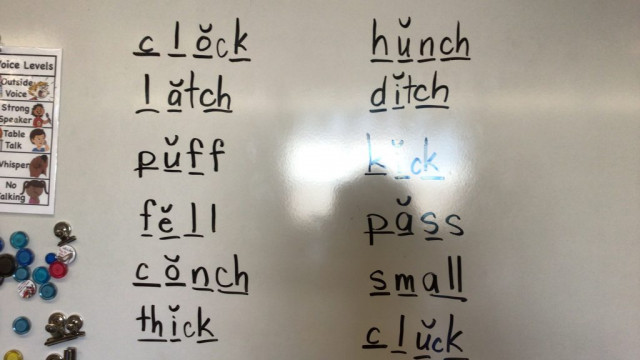 Voice Levels
Outside
Voice
Strong
Speaker
Table
Talk
Whisper
No
Talking
clŏck
lătch
pŭff
fĕll
cŏnch
thĭck
hŭnch
dĭtch
kĭck
păss
small
clŭck